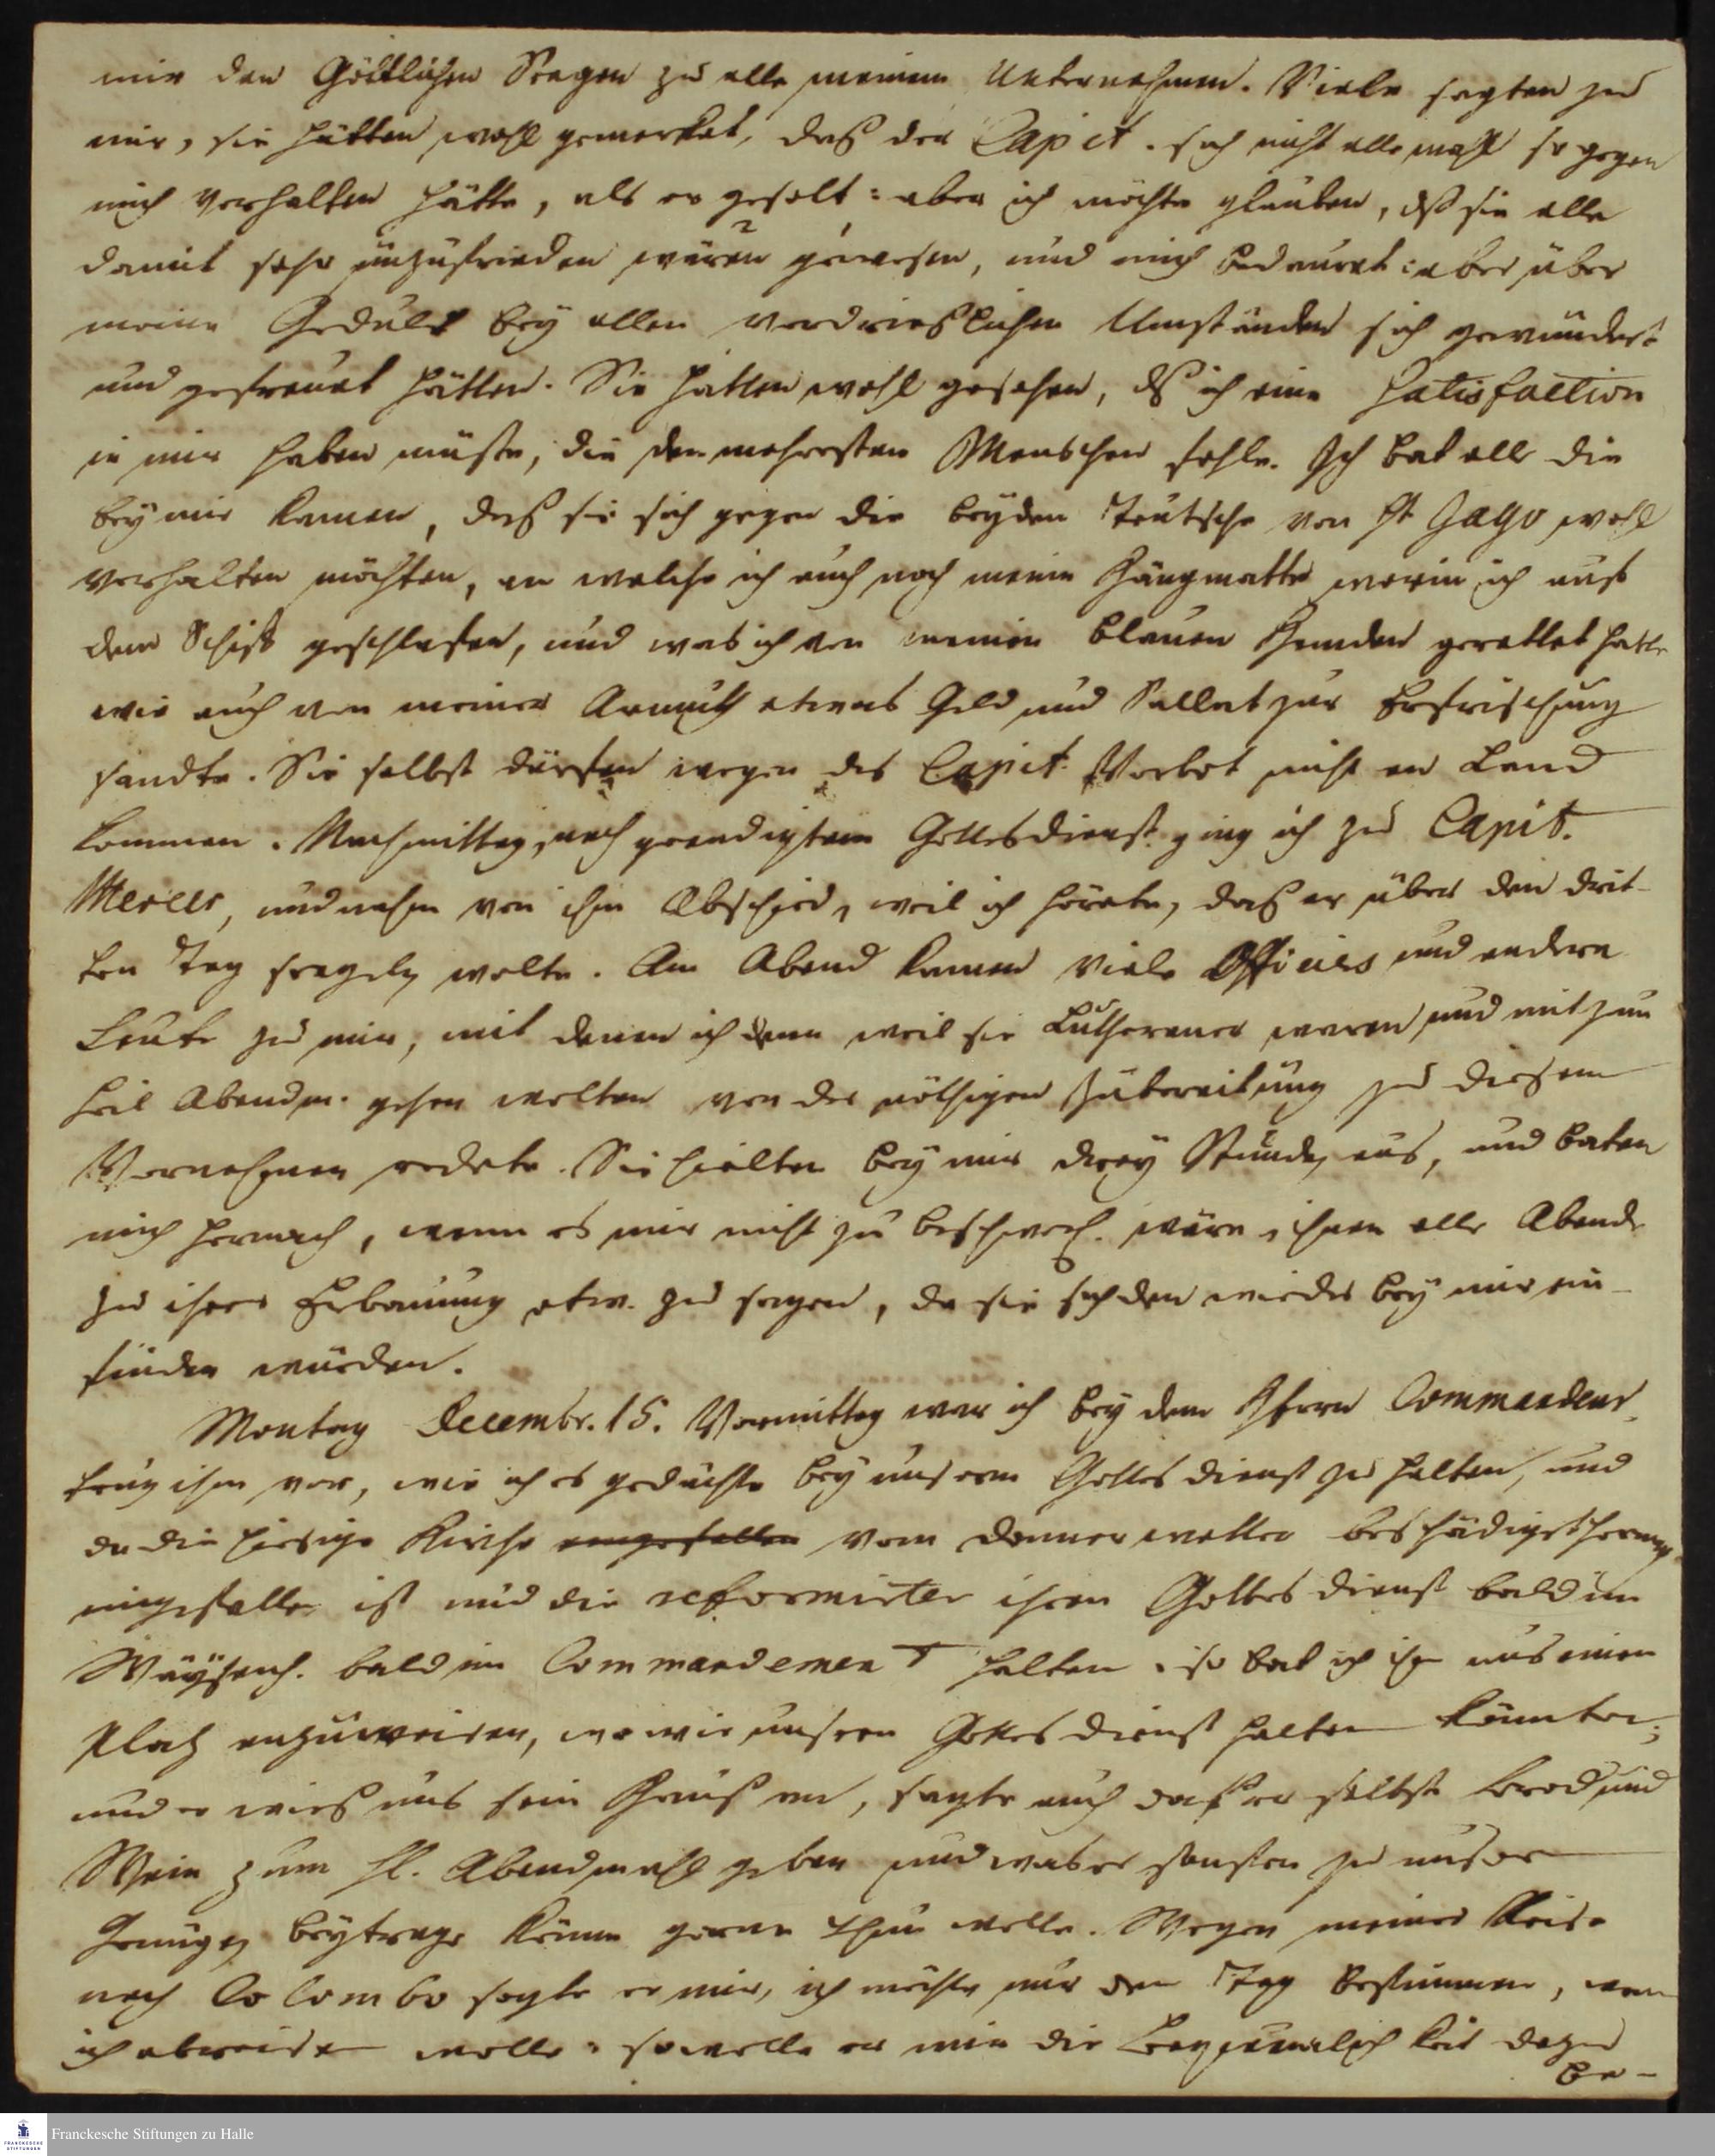 mir den Göttlichen Seegen zu alle meinem Unternehmen. Viele sagten zu
mir, sie hätten wohl gemerket, daß der Capit. sich nicht allemahl so gegen
mich verhalten hätte, als er gesolt: aber ich möchte glauben, dß sie alle
damit sehr unzufrieden wären gewesen, und mich bedauret: aber über
meine Gedult bey allen verdrieslichen Umständen sich gewundert
und gefreuet hätten. Sie hätten wohl gesehen, dß ich eine Satisfaction
in mir haben müste, die den mehresten Menschen fehle. Ich bat alle die
bey mir kamen, daß sie sich gegen die beyden Teutsche von St Jago wohl
verhalten möchten, an welche ich auch noch meine Hängmatte worin ich auf
dem Schiff geschlafen, und was ich von meinen blauen Hemden gerettet hatte
wie auch von meiner Armuth etwas Geld und Sallat zur Erfrischung
sandte. Sie selbst dürften wegen des Capit. Verbot nicht an Land
kommen. Nachmittag, nach geendigtem Gottesdienst ging ich zu Capit.
und nahm von ihm Abschied, weil ich hörete, daß er über den drit-
ten Tag seegeln wolte. Am Abend kamen viele Officiers und andere
Leute zu mir, mit denen ich denn weil sie Lutheraner waren und mit zum
heil Abendm. gehen wolten von der nöthigen Zubereitung zu diesem
Vornehmen redete. Sie hielten bey mir drey Stunden aus, und baten
mich hernach, wenn es mir nicht zu beschwerl. wäre, ihnen alle Abende
zu ihrer Erbauung etw. zu sagen, da sie sich den wieder bey mir ein-
finden würden.
Montag Decembr. 15. Vormittag war ich bey dem Herrn Commandeur,
trug ihm vor, wie ich es gedächte bey unserm Gottesdienst zu halten, und
da die hiesige Kirche eingefallen vom Donnerwetter beschädiget hernach
eingefallen ist und die reformirten ihren Gottesdienst bald im
Wäysenh. bald im Commandement halten, so bat ich ihn uns einen
Platz anzuweisen, wo wir unsern Gottesdienst halten könnten;
und er wieß uns sein Hauß an, sagte auch daß er selbst Brod und
Wein zum Hl. Abendmahl geben und was er sonsten zu unser
Genügen beytragen könne gerne thun wolle. Wegen meiner Reise
nach Colombo sagte er mir, ich möchte nur den Tag bestimmen, wen
ich abreisen wolle, so wolle er mir die Bequemlichkeit dazu
be-
Franckesche Stiftungen zu Halle